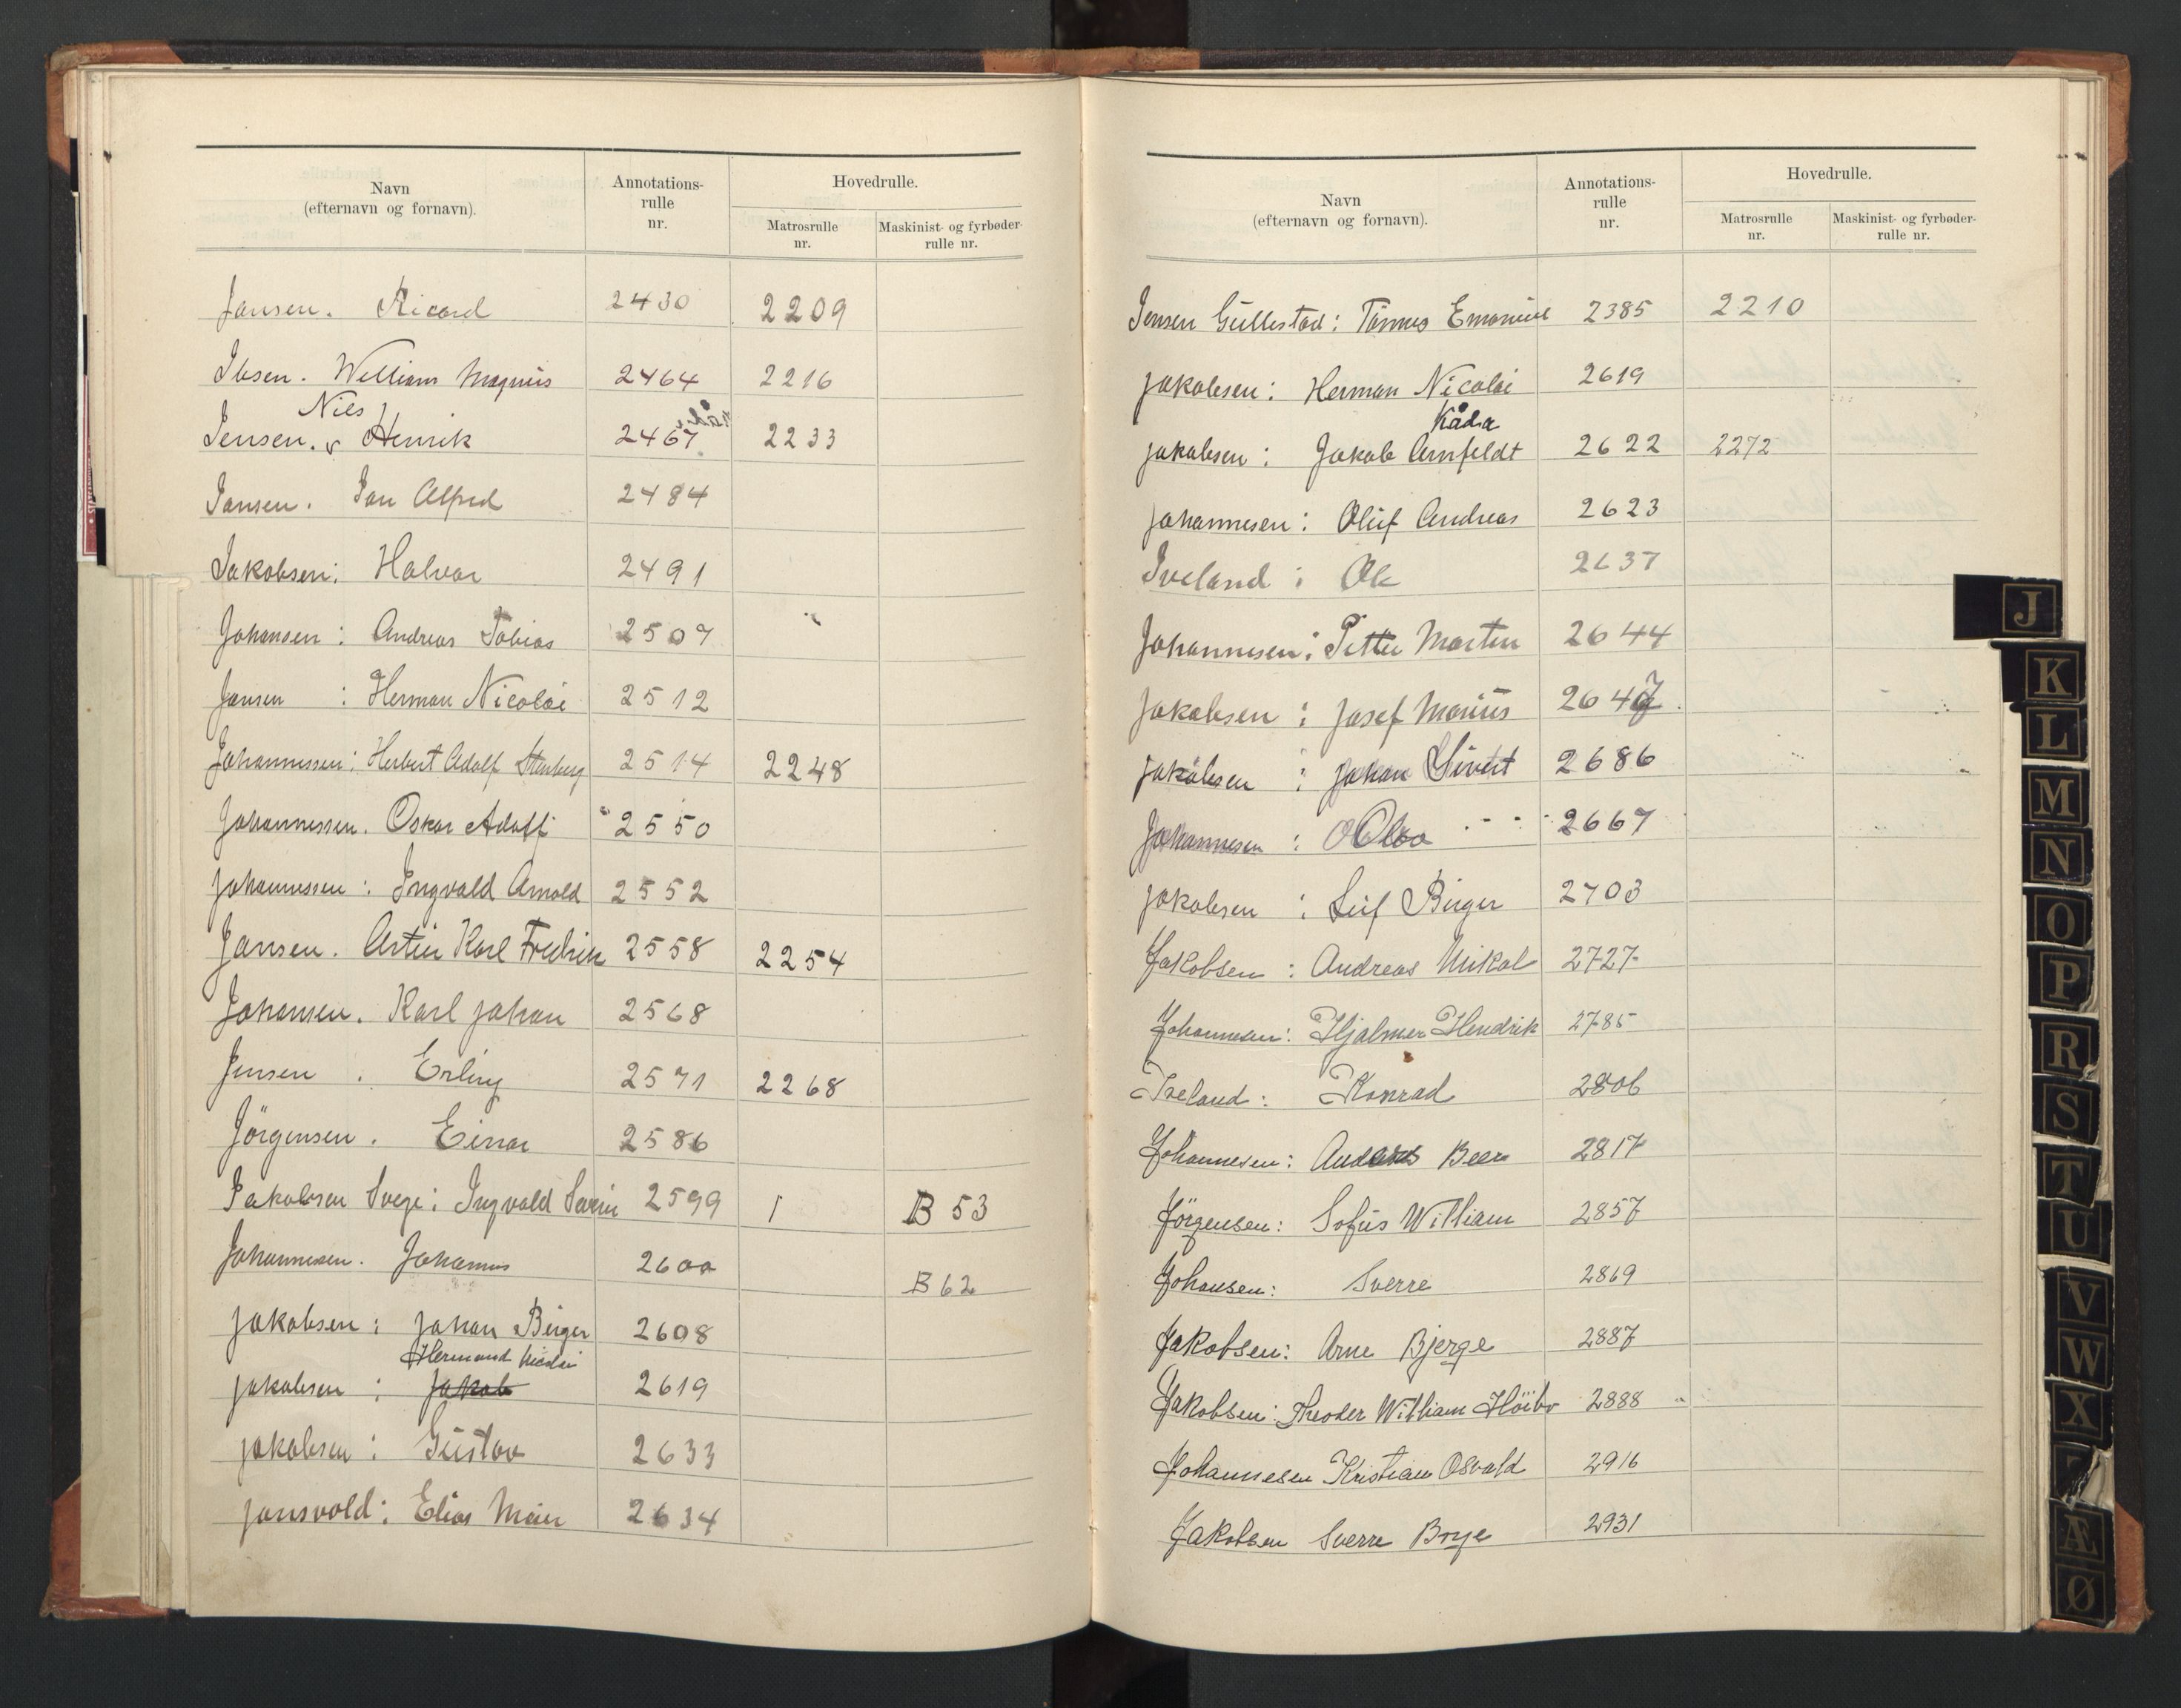 Navn
(efternavn og fornavn).
Annotations-
rulle
nr.
Hovedrulle.
Matrosrulle
nr.
Maskinist- og fyrbøder-
rulle nr.
Jansen. Ricard 2430 2209
Ibsen. William Magnus 2464 2216
Nils
Jensen. v Henrik 2467 2233
Jansen. Jan Alfred 2484
Jakobsen: Halvar 2491
Johansen: Andreas Tobias 2507
Jansen : Herman Nicolai 2512
Johannessen: Herbert Adolf Stenberg 2514 2248
Johannessen. Oskar Adolf 2550
Johannessen: Ingvald Arnold 2552
Jansen. Artur Karl Fredrik 2558 2254
Johansen. Karl Johan 2568
Jensen . Erling 2571 2268
Jörgensen. Einar 2586
Jakobsen Svege: Ingvald Severin 2599 1 B 53
Johannesen. Johannes 2600 B 62
Jakobsen: Johan Birger 2608
Hermand Nicolai
Jakobsen : Jakob 2619
Jakobsen : Gustav 2633
Jansvold: Elias Meier 2634
Navn
(efternavn og fornavn).
Annotations-
rulle
nr.
Hovedrulle.
Matrosrulle
nr.
Maskinist- og fyrbøder-
rulle nr.
Jensen Gullestad: Tomus Emanuel 2385 2210
Jakobsen: Herman Nicolai 2619
Kåda
Jakobsen: Jakob Arnfeldt 2622 2272
Johannesen: Oluf Andreas 2623
Iveland : Ole 2637
Johannesen: Petter Martin 2644
Jakobsen : Josef Marius 2647
Jakobsen : Johan Sivert 2686
Johannesen : Olav 2667
Jakobsen : Leif Birger 2703
Jakobsen : Andreas Mikal 2727
Johannesen: Hjalmer Hendrik 2785
Iveland: Konrad 2806
Johannesen: Anders Beer 2817
Jörgensen: Sofus William 2857
Johansen: Sverre 2869
Jakobsen: Arne Bjerge 2887
Jakobsen: Theoder William Höibo 2888
Johannesen Kristian Osvald 2916
Jakobsen Sverre Brye 2931
J
K
L
M
N
O
P
R
S
T
U
V
W
X
Æ
Ø